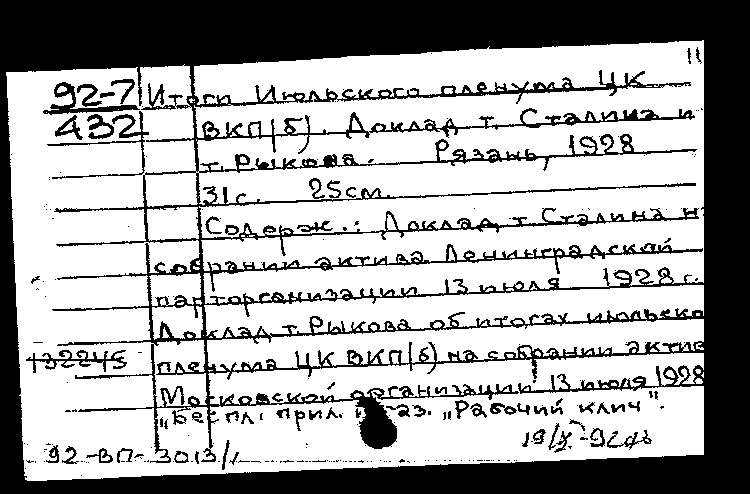 11
92-7 Итоги Июльского пленума ЦК
432 ВКП(б). Доклад т. Сталина и
т. Рыкова. Рязань, 1928
31с. 25см.
Содерж.: Доклад т. Сталина н
собрании актива Ленинградской
парторганизации 13 июля 1928 г.
Доклад т. Рыкова об итогах июльско
132245 пленума ЦК ВКП(б) на собрании актив
Московской организации 13 июля 1928
"Беспл. прил. газ. „Рабочий клич".
92-ВП-3013/1